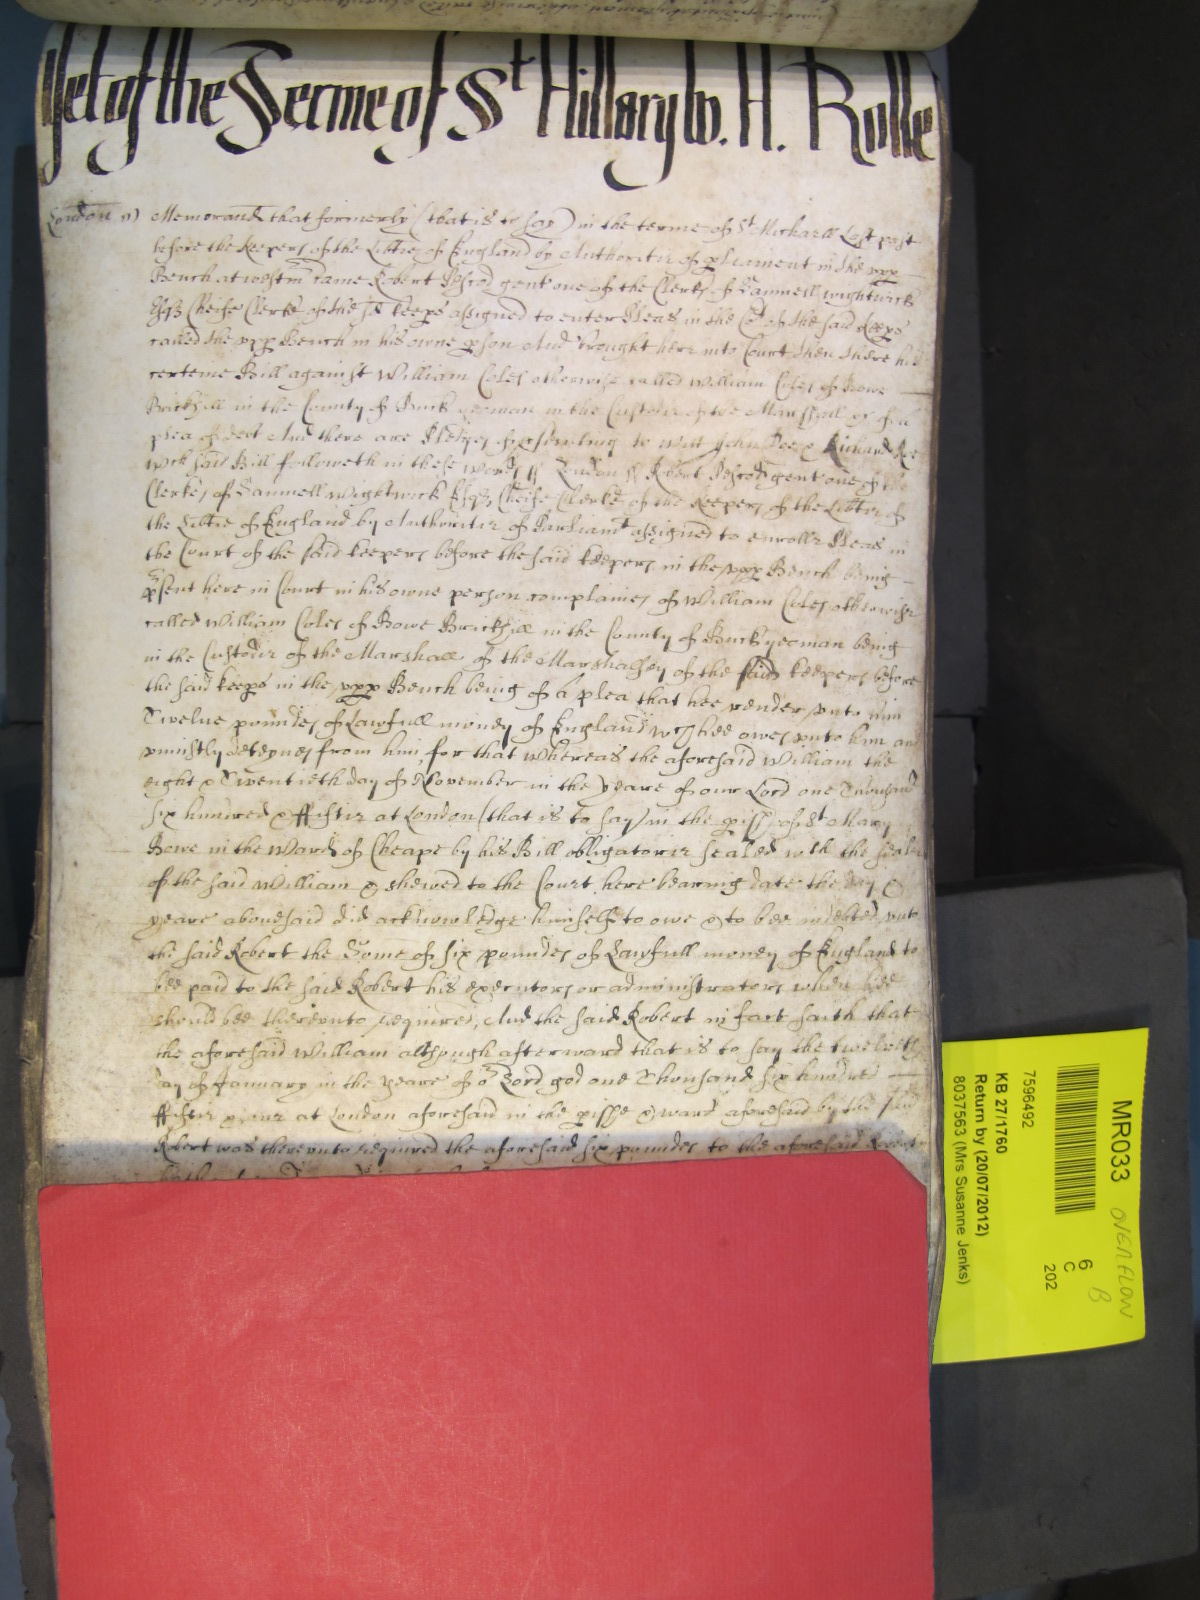 Yet of the Terme of St Hillary W. H. Rolle
London ss Memorand that formerly (that is to say) in the terme of St Michaell Last past
before the keepers of the Libtie of England by Authoritie of pliament in the vpp
Bench at westm came Robert gent one of the Clerks of Samuell wightwick
Esqz Cheife Clerke of the sd keeps assigned to enter Pleas in the Cot of the said keeps
called the vpp Bench in his owne pson And brought here into Court then there his
certeine Bill against William Coles otherwise called William Coles of Bowe
Brickhill in the County of Buck yeoman in the Custodie of the Marshall &c of a
plea of debt And there are Pledges of psecuting to witt John Doe & Richard Roe
wch said Bill followeth in these words ss London ss Robert gent one of the
Clerkes of Samuell Wightwick Esqz Cheife Clerke of the keepers of the Libtie of
the Libtie of England by Authoritie of Parliamt assigned to enrolle Pleas in
the Court of the said keepers before the said keepers in the vpp Bench being
psent here in Court in his owne person complaines of William Coles otherwise
called William Coles of Bowe Brickhill in the County of Buck yeoman being
in the Custodie of the Marshall of the Marshalsey of the said keepers before
the said keeps in the vpp Bench being of a plea that hee render vnto him
Twelue poundes of Lawfull money of England wch hee owes vnto him and
vniustly deteynes from him, for that Whereas the aforesaid William the
eight & Twentieth day of November in the yeare of our Lord one Thousand
six hundred & ffiftie at London (that is to say) in the pish of St Mary
Bowe in the Ward of Cheape by his Bill obligatorie sealed wth the seale
of the said William & shewed to the Court here bearing date the day &
yeare abouesaid did acknowledge himselfe to owe & to bee indebted vnto
the said Robert the Some of six poundes of Lawfull money of England to
bee paid to the said Robert his executors or administrators when hee
should bee therevnto required, And the said Robert in fact saith that
the aforesaid William although afterward that is to say the twelveth
day of January in the yeare of or Lord god one Thousand six hundred
ffiftie & at London aforesaid in the pishe & ward aforesaid by the said
Robert was therevnto required the aforesaid six poundes to the aforesaid Robert
MR033 OVERFLOW
B
6
C
202
7596492
KB 27/1760
Return by (20/07/2012)
8037563 (Mrs Susanne Jenks)